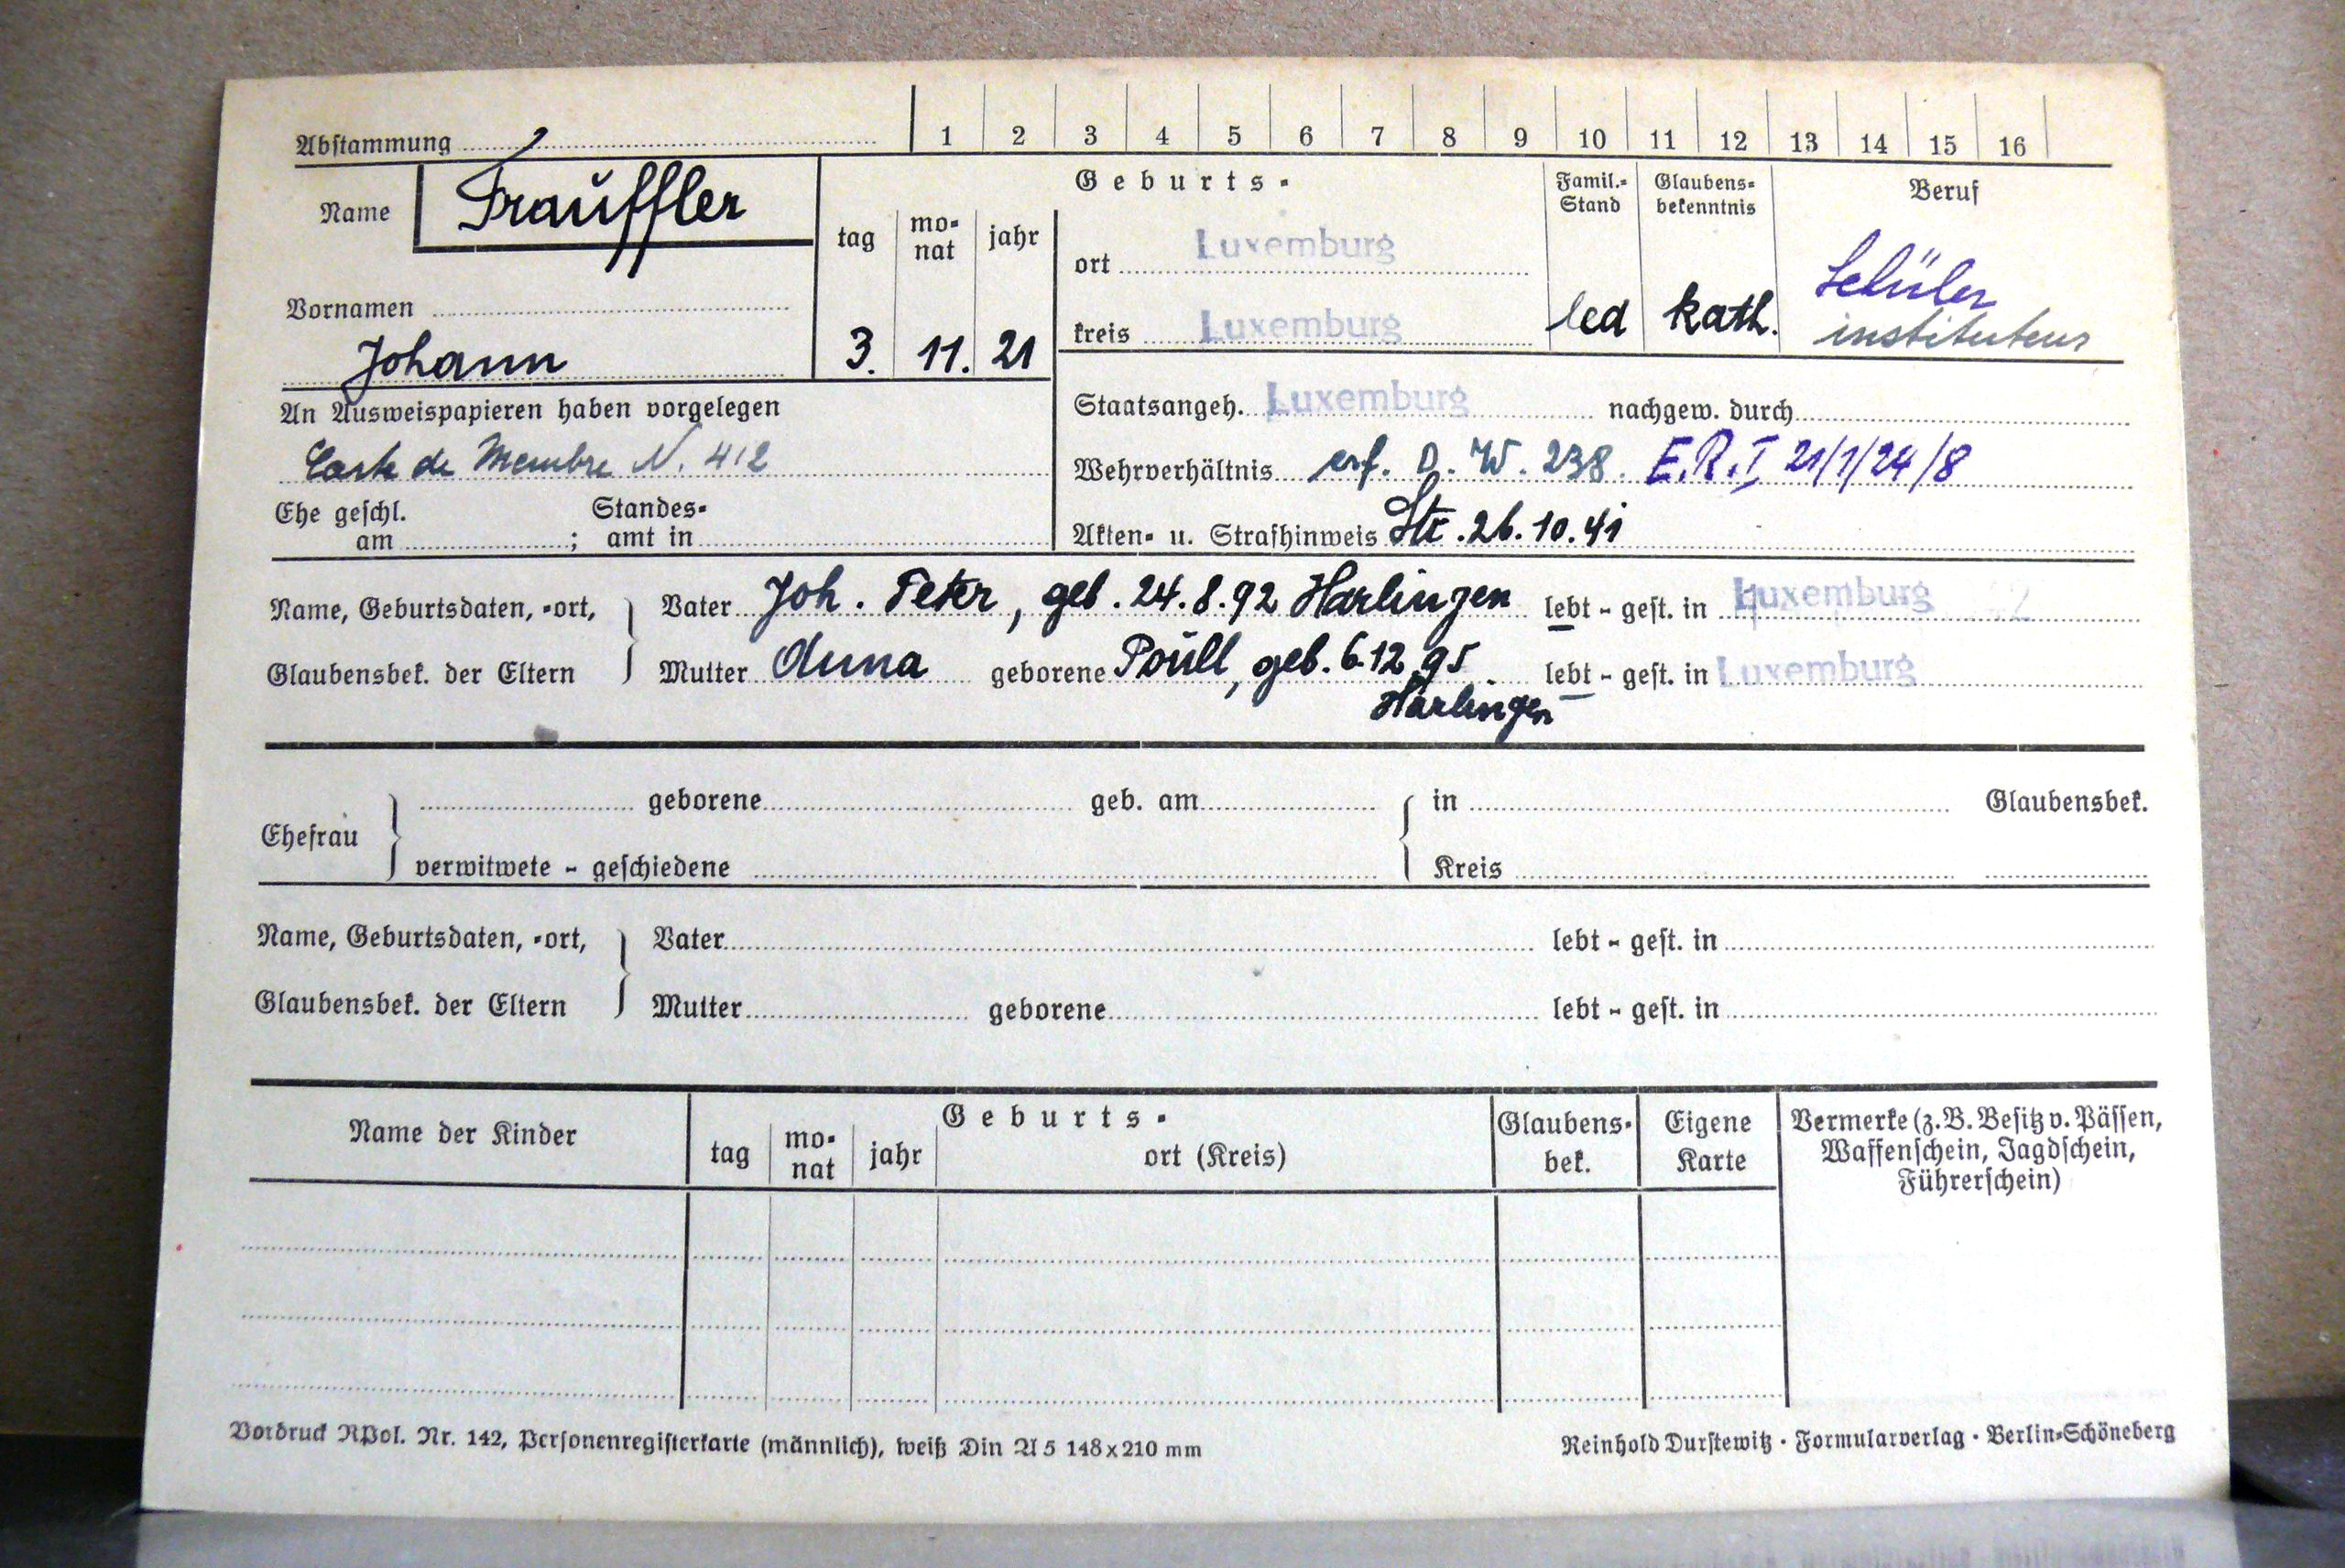 Abstammung 1 2 3 4 5 6 7 8 9 10 11 12 13 14 15 16
Name Trauffler
Geburts-
tag monat jahr
Famil.-Stand
Glaubensbekenntnis
Beruf
ort Luxemburg
Schüler
Vornamen
kreis Luxemburg
led kath. instituteur
Johann
3. 11. 21
An Ausweispapieren haben vorgelegen
Staatsangeh. Luxemburg nachgew. durch
Carte de Membre N. 412
Wehrverhältnis erf. D. W. 238. E.R.I 21/1/24/8
Ehe geschl. am ; Standesamt in
Akten- u. Strafhinweis Str. 26.10.41
Name, Geburtsdaten, -ort, Vater Joh. Peter, geb. 24.8.92 Harlingen lebt - gest. in Luxemburg
Glaubensbek. der Eltern Mutter Anna geborene Poull, geb. 6.12.95 lebt - gest. in Luxemburg
Harlingen
Ehefrau geborene geb. am in Glaubensbek.
verwitwete - geschiedene Kreis
Name, Geburtsdaten, -ort, Vater lebt - gest. in
Glaubensbek. der Eltern Mutter geborene lebt - gest. in
Name der Kinder
Geburts-
tag monat jahr ort (Kreis)
Glaubensbek.
Eigene Karte
Vermerke (z. B. Besitz v. Pässen,
Waffenschein, Jagdschein,
Führerschein)
Vordruck RPol. Nr. 142, Personenregisterkarte (männlich), weiß Din A 5 148x210 mm
Reinhold Durstewitz · Formularverlag · Berlin-Schöneberg